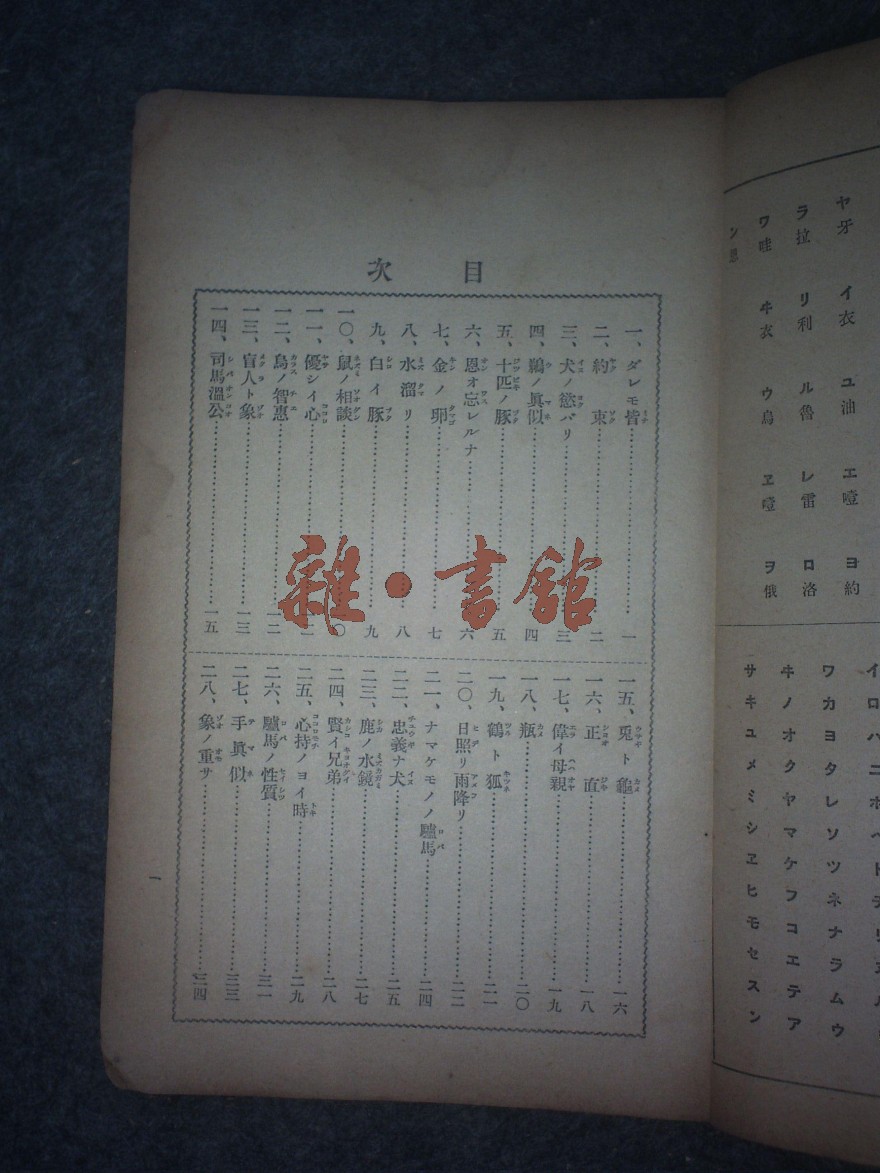 ヤ牙 イ衣 ユ油 エ噎 ヨ約
ラ拉 リ利 ル魯 レ雷 ロ洛
ワ哇 ヰ衣 ウ烏 ヱ噎 ヲ俄
ン恩
イロハニホヘトチリ
ワカヨタレソツネナラムウ
ヰノオクヤマケフコエテア
サキユメミシヱヒモセスン
目次
一、ダレモ皆……一
二、約束……二
三、犬ノ慾バリ……三
四、鵜ノ眞似……四
五、十匹ノ豚……五
六、恩オ忘レルナ……六
七、金ノ卵……七
八、水溜リ……八
九、白イ豚……九
一〇、鼠ノ相談……〇
一一、優シイ心……
一二、烏ノ智惠……一二
一三、盲人ト象……一三
一四、司馬溫公……一五
一五、兎ト龜……一六
一六、正直……一八
一七、偉イ母親……一九
一八、瓶……二〇
一九、鶴ト狐……二一
二〇、日照リ雨降リ……二二
二一、ナマケモノノ驢馬……二四
二二、忠義ナ犬……二五
二三、鹿ノ水鏡……二七
二四、賢イ兄弟……二八
二五、心持ノヨイ時……二九
二六、驢馬ノ性質……三一
二七、手眞似……三三
二八、象ノ重サ……三四
一
雜·書館